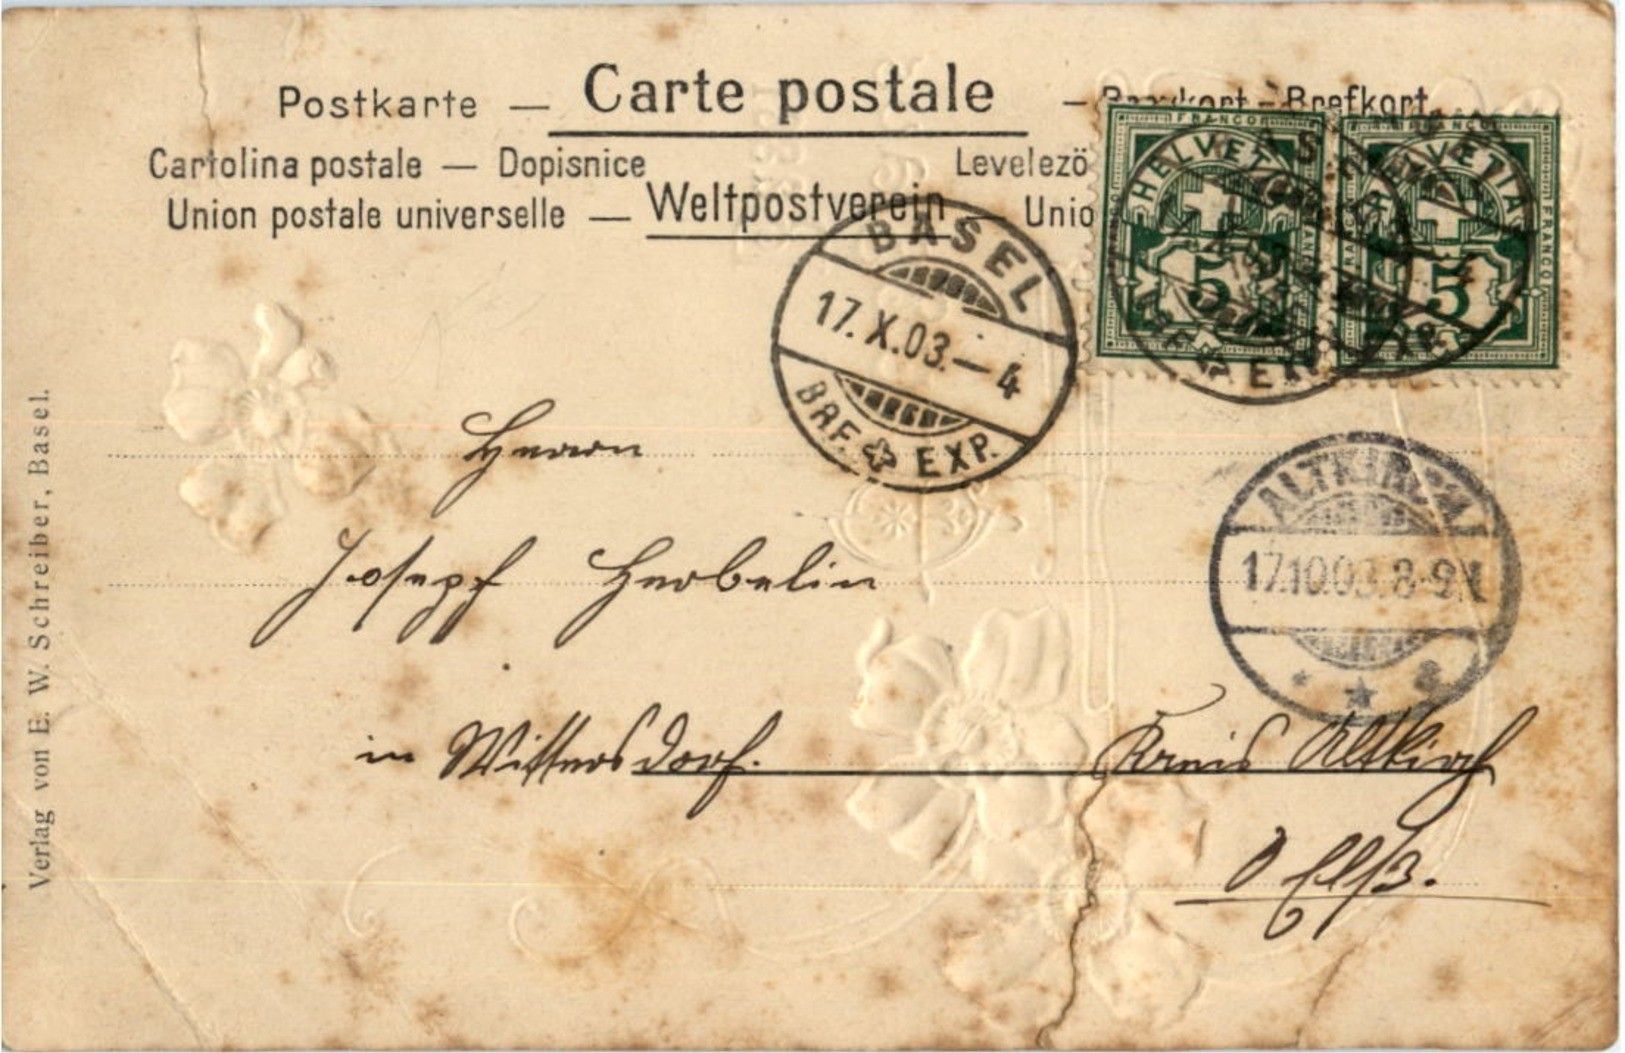 Postkarte — Carte postale — Brevkort — Brefkort
Cartolina postale — Dopisnice
Levelező
Union postale universelle — Weltpostverein — Unio
FRANCO
HELVETIA
5
FRANCO
HELVETIA
5
BASEL
17. X. 03. — 4
BRF. EXP.
EXP.
ALTKIRCH
17.10.03. 8-9
a
Herrn
Joseph Herbelin
in Wittersdorf. Kreis Altkirch
O Elsß.
Verlag von E. W. Schreiber, Basel.